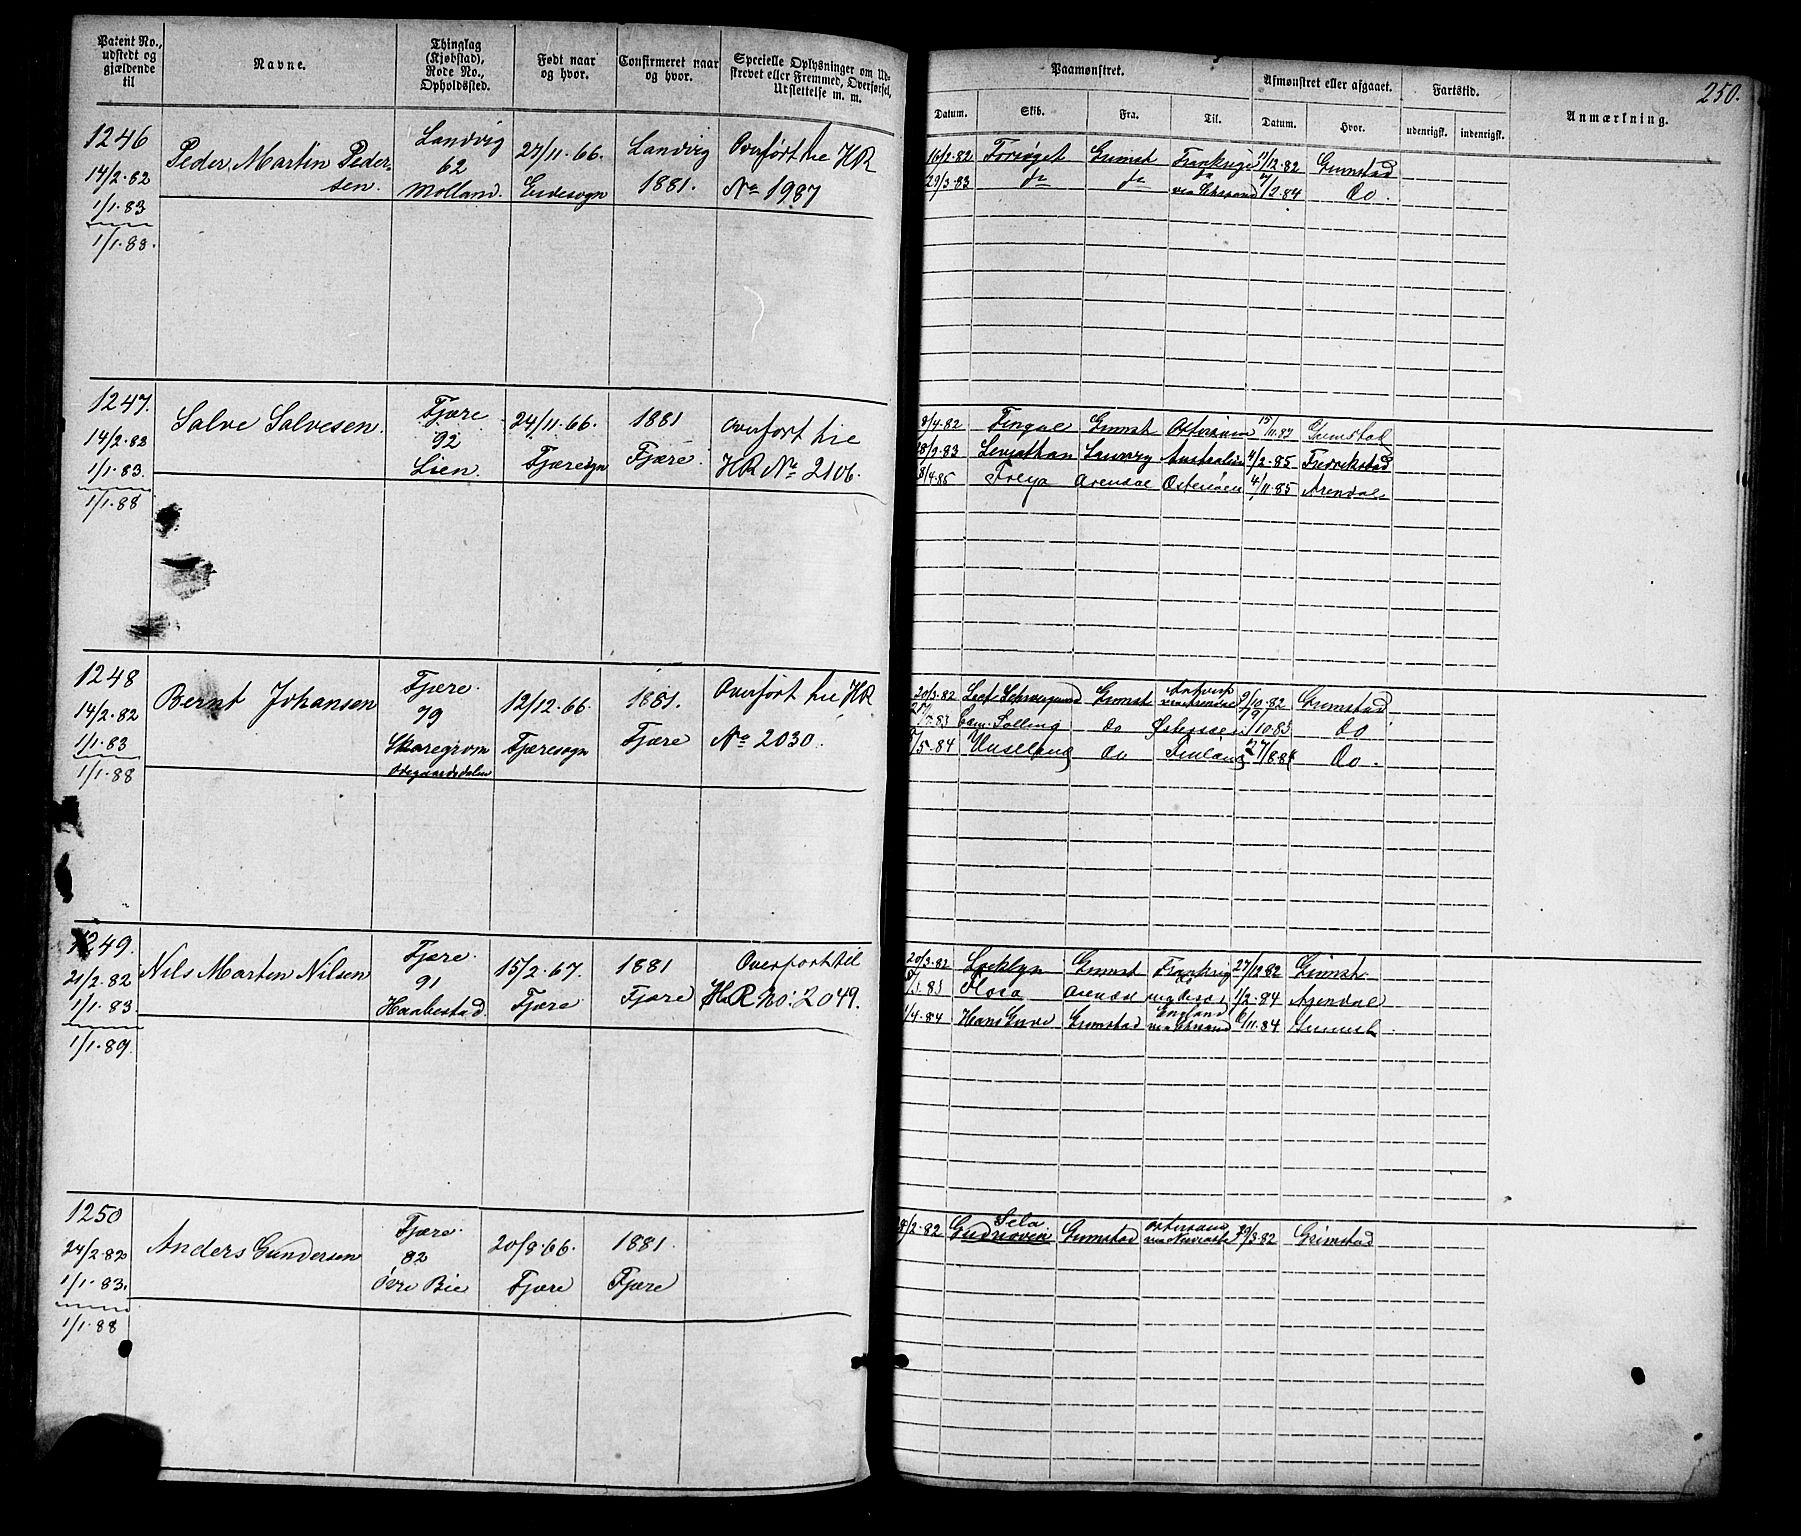 Patent No., udstedt og gjældende til
Navne.
Thinglag (Kjøbstad), Rode No., Opholdssted.
Født naar og hvor.
Confirmeret naar og hvor.
Specielle Oplysninger om Udskrevet eller Fremmed, Overførsel, Udslettelse m. m.
Paamønstret.
Afmønstret eller afgaaet.
Fartstid.
Anmærkning.
250.
Datum.
Skib.
Fra.
Til.
Datum.
Hvor.
udenrigsk.
indenrigsk.
1246
14/2.82
1/1.83
1/1.88.
Peder Martin Peder-
sen.
Landvig
62
Molland.
27/11.66.
Eidesogn
Landvig
1881.
Overført til HR
No 1987
16/2.82 Forsøget Grimst Frankrige 11/12.82 Grimstad
29/3.83 do do Do.
1247.
14/2.83
1/1.83.
1/1.88
Salve Salvesen.
Fjære
92
Lien.
24/11.66.
Fjæresogn
1881
Fjære.
Overført til
HR No 2106.
8/4.82 Fingal Grimst Østersøen Grimstad
28/9.83 Leviathan Australien 4/2.85 Fredrikstad
8/4.85 Freya Arendal Østersøen 4/11.85 Arendal
1248
14/2.82
1/1.83
1/1.88
Bernt Johansen
Fjære.
79
Skaregrøm
Odegaardsdalen
12/12.66.
Fjæresogn
1881.
Fjære
Overført til HR
No 2030.
20/3.82 Grimst Antwerp 9/10.82 Grimstad
Solling do Østersøen Do
84 do Do.
1249.
21/2.82
1/1.83.
1/1.89.
Nils Martin Nilsen
Fjære.
91
Haabestad
15/2.67.
Fjære
1881
Fjære
Overført til
HR No: 2049.
20/3.82 Grimst Frankrig 27/12.82 Grimst
Flora Arendal 1/2.84 Arendal
England
1/4.84 Hans Gude Grimstad 6/11.84 Grimst
1250
24/2.82
1/1.83.
1/1.88
Anders Gundersen
Fjære.
82
Øvre Bie
20/8.66.
Fjære
1881.
Fjære
Sela
28/2.82 Grimstad 29/3.82 Grimstad